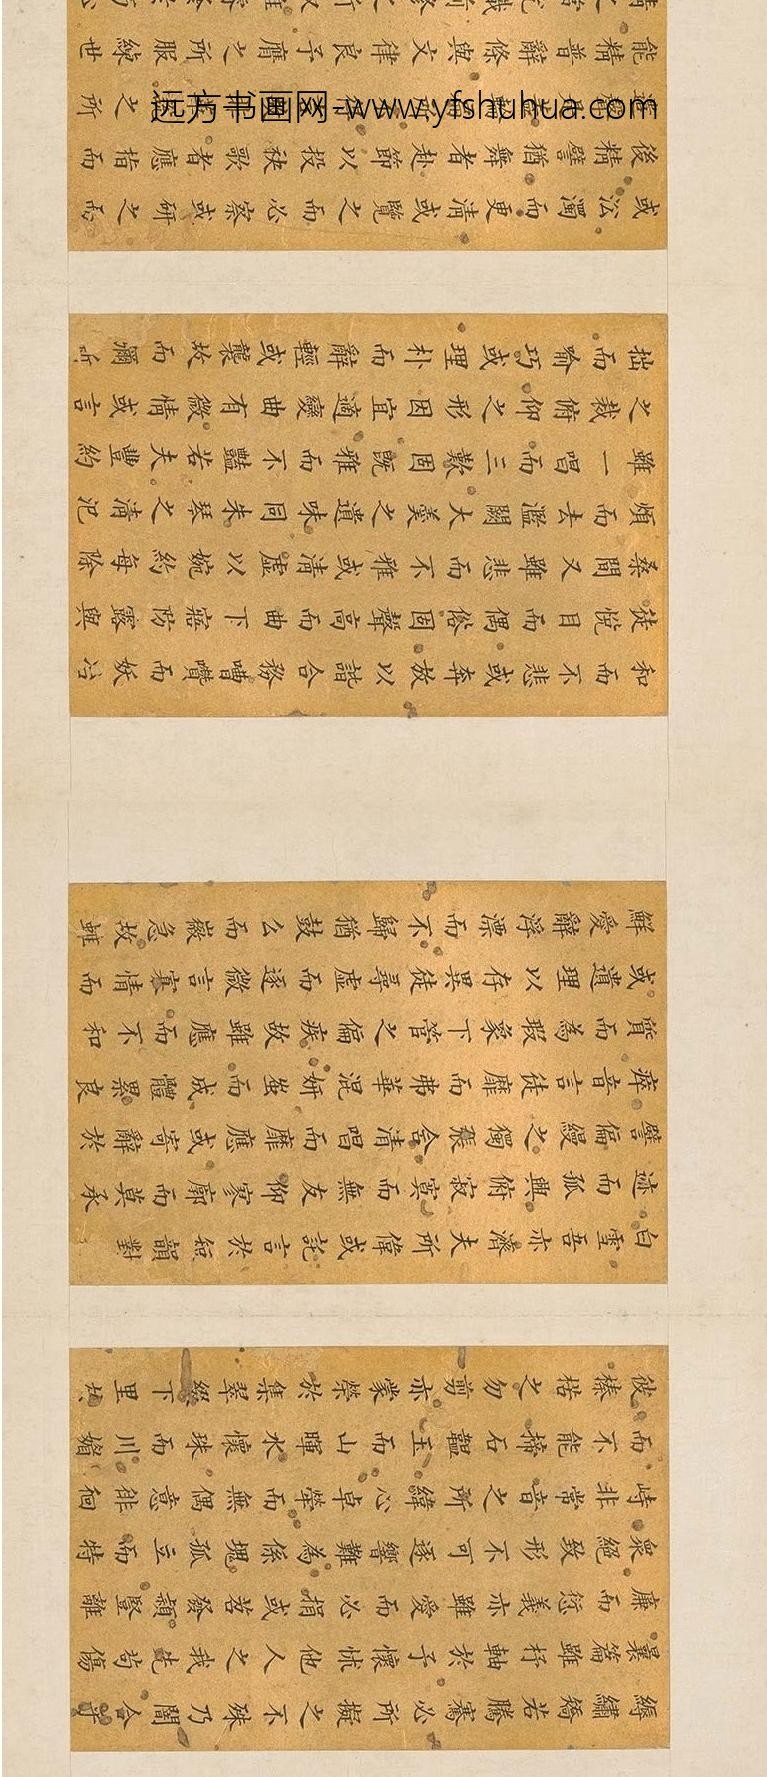 縟繡矯若騰騫必所擬之不殊乃闇合乎
曩篇雖杼軸於予懷怵他人之我先苟傷
廉而愆義亦雖愛而必捐或苕發穎豎離
衆絕致形不可逐響難為係塊孤立而特
峙非常音之所緯心卓犖而無偶意徘徊
而不能揥石韞玉而山暉水懷珠而川媚
彼榛楛之勿剪亦蒙榮於集翠綴下里於
白雪吾亦濟夫所偉或託言於短韻對
迹而孤興俯寂寞而無友仰寥廓而莫承
譬偏之獨張含清唱而靡應或寄辭於
瘁音言徒靡而弗華混妍蚩而成體累良
質而為瑕象下管之偏疾故雖應而不和
或遺理以存異徒尋虛而逐微言寡情而
鮮愛辭浮漂而不歸猶鼓么而徽急故雖
和而不悲或奔放以諧合務嘈囋而妖冶
徒悅目而偶俗固聲高而曲下寤防露與
桑間又雖悲而不雅或清虛以婉約每除
煩而去濫闕大羹之遺味同朱琴之清氾
雖一唱而三歎固既雅而不豔若夫豐約
之裁俯仰之形因宜適變曲有微情或言
拙而喻巧或理朴而辭輕或襲故而彌新
或沿濁而更清或覽之而必察或研之而
後精譬猶舞者赴節以投袂歌者應指而
之所
能精普辭條與文律良予膺之所服練世
远方书画网-www.yfshuhua.com